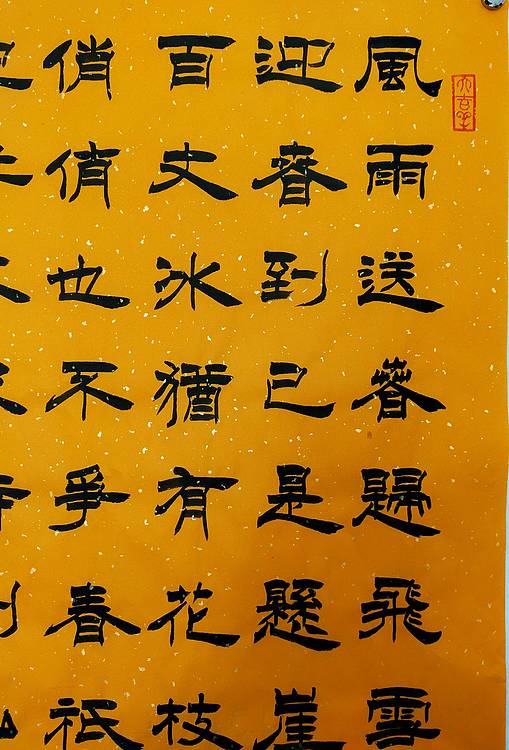 風雨送春歸飛雪
迎春到已是懸崖
百丈冰猶有花枝
俏俏也不爭春祇